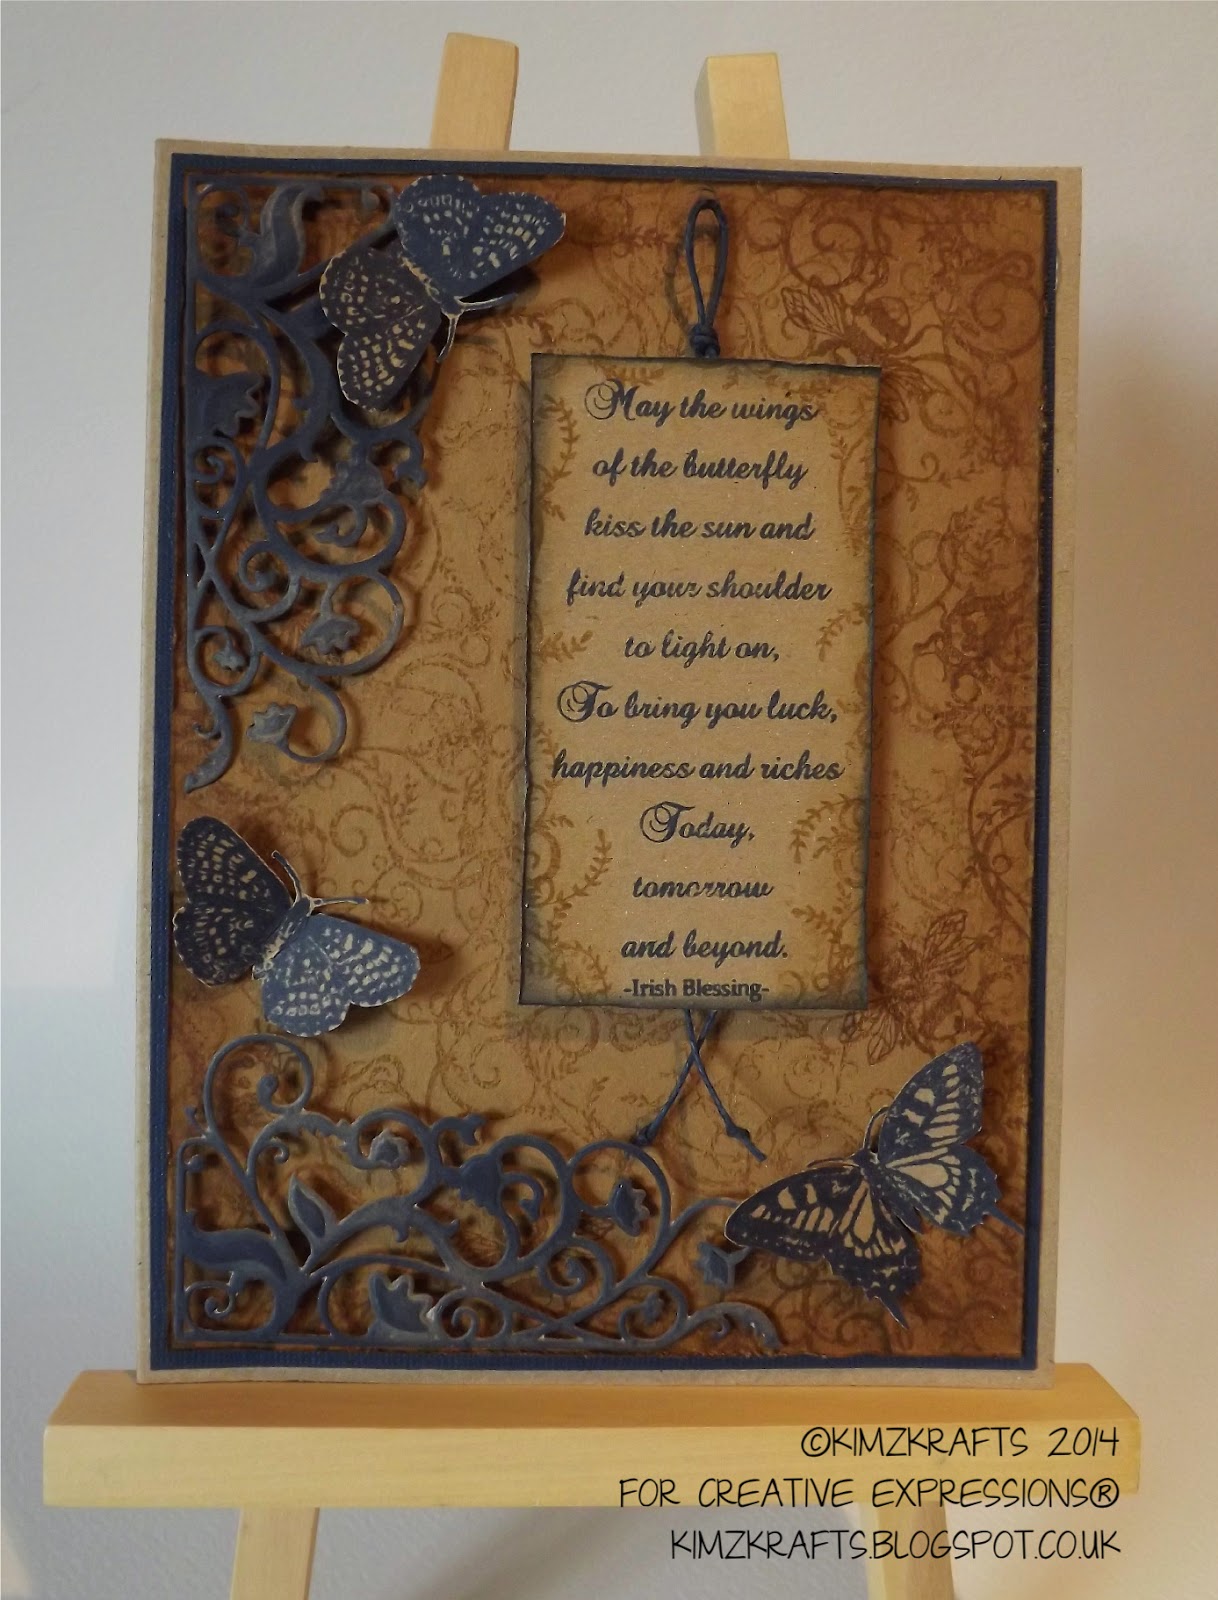 May the wings
of the butterfly
kiss the sun and
find your shoulder
to light on,
To bring you luck,
happiness and riches
Today,
tomorrow
and beyond.
-Irish Blessing-
©KIMZKRAFTS 2014
FOR CREATIVE EXPRESSIONS®
KIMZKRAFTS.BLOGSPOT.CO.UK